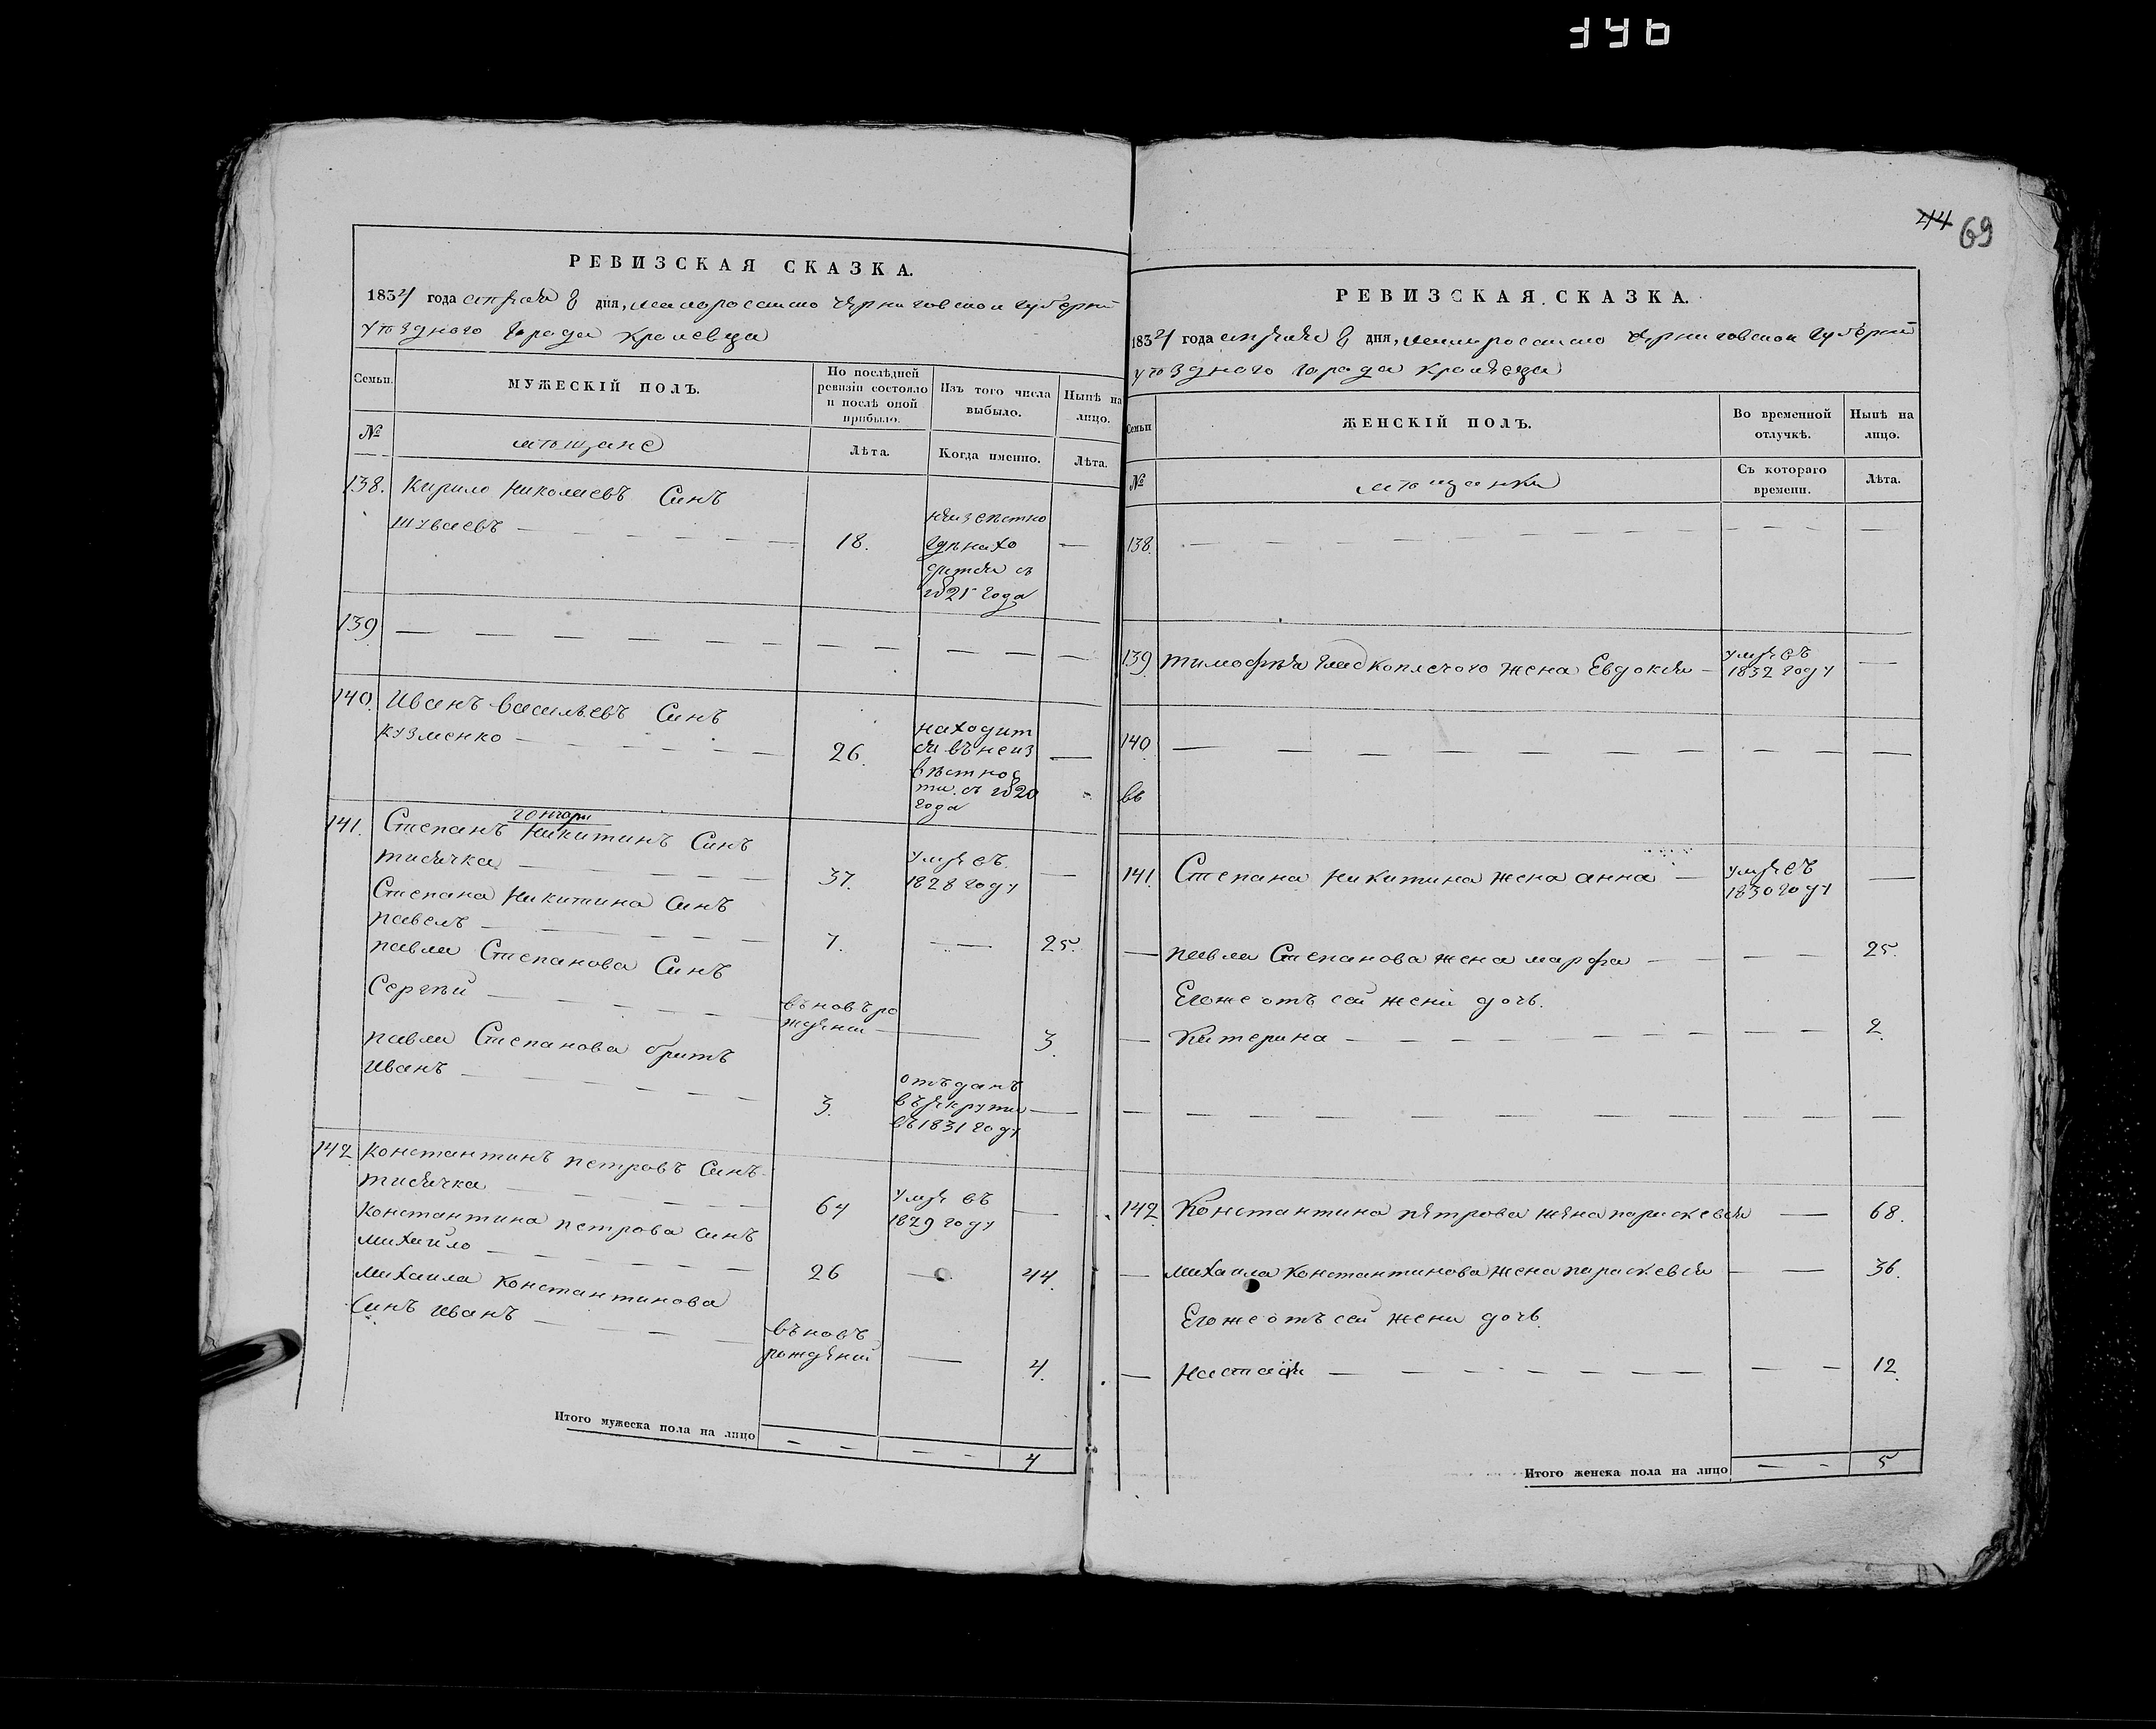 346
44 69
РЕВИЗСКАЯ СКАЗКА.
1834 года апреля 8 дня, малоросiйско черниговской губернiй
уѣздного города кролевца
Семьи.
МУЖЕСКIЙ ПОЛЪ.
По послѣдней ревизiи состояло и послѣ оной прибыло.
Изъ того числа выбыло.
Нынѣ на лицо.
№
мѣщане
Лѣта.
Когда именно.
Лѣта.
138. Кирило Николаевъ Синъ
Шуваевъ — 18. —
неизвѣстно
гдѣ нахо
дится съ
1821 года
139 — — — — —
140. Иванъ Васильевъ Синъ
Кузменко — 26. —
находит
ся въ неиз
вѣстнос
ти. съ 1820
года
гончари
141. Степанъ Никитинъ Синъ
тисячка — 37. умре въ —
1828 году
Степана Никитина Синъ
павелъ — 7. — 25.
павла Степанова Синъ
Сергѣй — въновъ ро
жденій — 3.
павла Степанова братъ
Иванъ — 3. —
отъданъ
въ рекрути
въ 1831 году
142 Константинъ петровъ Синъ
тисячка — 64 умре въ —
1829 году
Константина петрова синъ
михайло — 26 — 44.
михаила Константинова
Синъ иванъ — въновъ
рожденій — 4.
Итого мужеска пола на лицо — — — — 4
РЕВИЗСКАЯ СКАЗКА.
1834 года апреля 8 дня, малоросiйско черниговской губернiй
уѣздного города кролевца
Семьи
ЖЕНСКIЙ ПОЛЪ.
Во временной отлучкѣ.
Нынѣ на лицо.
№
мѣщанки
Съ котораго времени.
Лѣта.
138. — — — — —
139. тимофѣя Гладкоплечого жена Евдокия — умре въ —
1832 году
140 — — — — —
141. Степана Никитина жена анна — умре въ —
1830 году
— павла Степанова жена марфа — — — 25.
Егоже отъ сей жени дочь.
— Катерина — — — 2.
— — — — —
142. Константина петрова жена параскевия — 68.
— михаила Константинова жена параскевия — — 36.
Егоже отъ сей жени дочь.
— Настасiя — — — 12
Итого женска пола на лицо — — 5